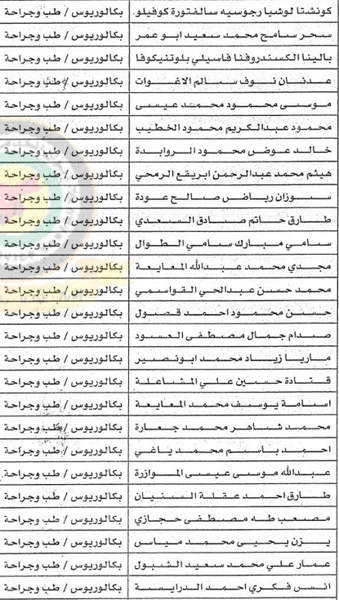 كونشتا لوشيا رجوسيه سالفتورة كوفيلو بكالوريوس / طب وجراحة
سحر سامح محمد سعيد ابو عمر بكالوريوس / طب وجراحة
بالينا الكسندروفنا فاسيلي بلوتنيكوفا بكالوريوس / طب وجراحة
عدنان نوف سالم الاغوات بكالوريوس / طب وجراحة
موسى محمود محمد عيسى بكالوريوس / طب وجراحة
محمود عبدالكريم محمود الخطيب بكالوريوس / طب وجراحة
خالد عوض محمود الروابدة بكالوريوس / طب وجراحة
هيثم محمد عبدالرحمن ابريقع الرمحي بكالوريوس / طب وجراحة
سوزان رياض صالح عودة بكالوريوس / طب وجراحة
طارق حاتم صادق السعدي بكالوريوس / طب وجراحة
سامي مبارك سامي الطوال بكالوريوس / طب وجراحة
مجدي محمد عبدالله المعايعة بكالوريوس / طب وجراحة
محمد حسن عبدالحي القواسمي بكالوريوس / طب وجراحة
حسن محمود احمد قصول بكالوريوس / طب وجراحة
صدام جمال مصطفى العسود بكالوريوس / طب وجراحة
ماريا زياد محمد ابونصير بكالوريوس / طب وجراحة
قتادة حسين علي المشاعلة بكالوريوس / طب وجراحة
اسامة يوسف محمد المعايعة بكالوريوس / طب وجراحة
محمد شاهر محمد جعارة بكالوريوس / طب وجراحة
احمد باسم محمد ياغي بكالوريوس / طب وجراحة
عبدالله موسى عيسى الموازرة بكالوريوس / طب وجراحة
طارق احمد عقلة السنيان بكالوريوس / طب وجراحة
مصعب طه مصطفى حجازي بكالوريوس / طب وجراحة
يزن يحيى محمد مياس بكالوريوس / طب وجراحة
عمار علي محمد سعيد الشبول بكالوريوس / طب وجراحة
انس فكري احمد الدرايسة بكالوريوس / طب وجراحة